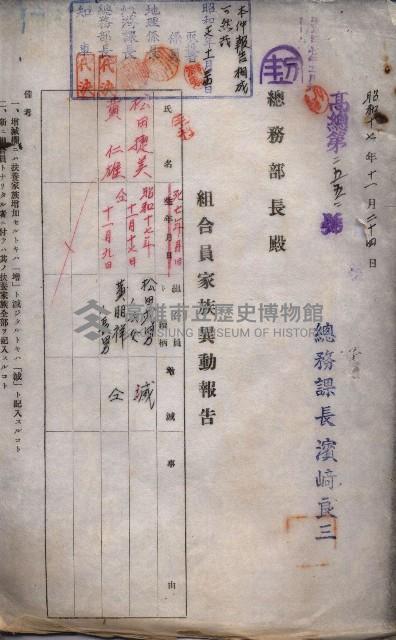 昭和十七年十一月二十四日
高總第二五五二號
總務課長 濱﨑良三
總務部長殿
組合員家族異動報告
本件報告相成
可然哉
昭和
地理係
經濟課長
總務部長
知事
代決
代決
氏名
死亡年月日
生年月日
組合員
續柄
增減事由
松田捷美
昭和十七年
十一月十七日
減
黃仁雄
仝
十一月九日
仝
備考
一、增減欄ニハ扶養家族增加セルトキハ「增」ト減ジタルトキハ「減」ト記入スルコト
二、新ニ組合員トナリタル者ニ付テハ其ノ扶養家族全部ヲ記入スルコト
高雄市立歷史博物館
KAOHSIUNG MUSEUM OF HISTORY